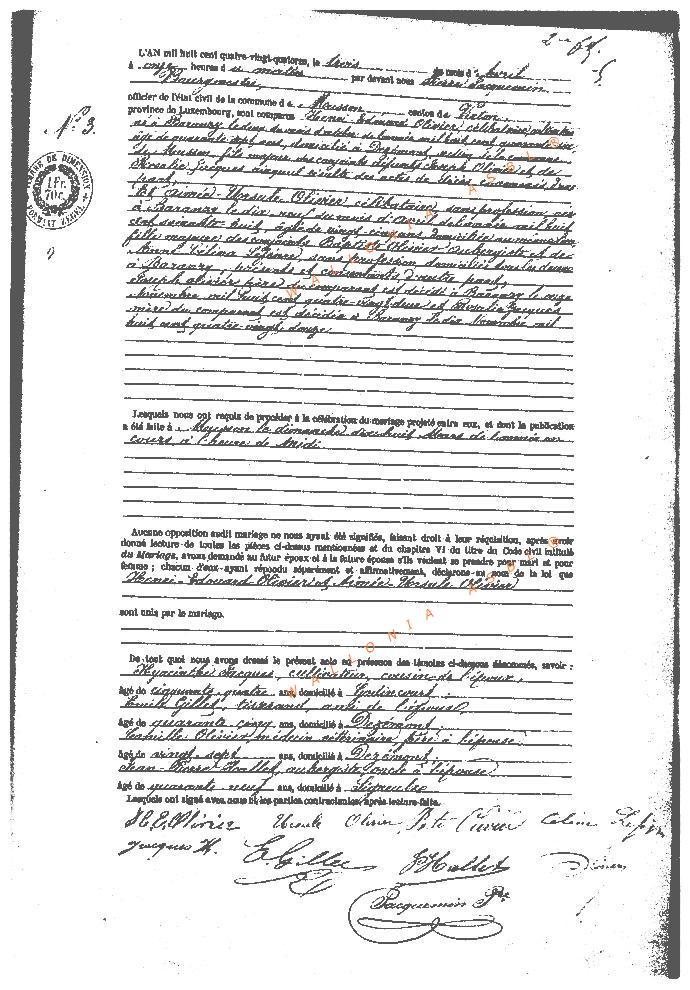 N.o 3.
TIMBRE DE DIMENSION
1 Fr. 70c.
L'AN mil huit cent quatre-vingt-quatorze, le trois du mois d'Avril
à onze heures du matin par devant nous Pierre Jacquemin
Bourgmestre,
officier de l'état civil de la commune de Musson canton de Virton
province de Luxembourg, sont comparus Henri Edouard Olivier célibataire
né à Baranzy le du mois d'octobre de l'année mil huit cent quarante
âgé de quarante sept ans, domicilié à section de la commune
de Musson, fils majeur des conjoints défunts Joseph Olivier et de
Rosalie Jacques
part,
Et Aimée Ursule Olivier célibataire, sans profession, née
à Baranzy le dix neuf du mois d'avril de l'année mil huit
cent soixante huit, âgée de vingt cinq ans domiciliée au même lieu
fille majeure des conjoints Baptiste Olivier aubergiste et de
Anne Célina sans profession domiciliés tous les deux
à Baranzy, présents et consentants d'autre part,
Joseph Olivier père du comparant est décédé à Baranzy le onze
Novembre mil huit cent quatre-vingt douze et Rosalie Jacques
mère du comparant est décédée à Baranzy le dix Novembre mil
huit cent quatre-vingt douze
Lesquels nous ont requis de procéder à la célébration du mariage projeté entre eux, et dont la publication
a été faite à Musson le dimanche dix huit Mars de l'année en
cours à l'heure de Midi
Aucune opposition audit mariage ne nous ayant été signifiée, faisant droit à leur réquisition, après avoir
donné lecture de toutes les pièces ci-dessus mentionnées et du chapitre VI du titre du Code civil intitulé
du Mariage, avons demandé au futur époux et à la future épouse s'ils veulent se prendre pour mari et pour
femme ; chacun d'eux ayant répondu séparément et affirmativement, déclarons au nom de la loi que
Henri Edouard Olivier et Aimée Ursule Olivier
sont unis par le mariage.
De tout quoi nous avons dressé le présent acte en présence des témoins ci-dessous dénommés, savoir :
Hyacinthe Jacques, cultivateur, cousin de l'époux,
âgé de cinquante quatre ans, domicilié à Godincourt,
Emile Gillet, tisserand, ami de l'époux,
âgé de quarante cinq ans, domicilié à
Camille Olivier médecin vétérinaire, frère à l'épouse
âgé de vingt sept ans, domicilié à
Jean-Pierre Hallet, aubergiste, oncle à l'épouse
âgé de quarante neuf ans, domicilié à Signeulx
Lesquels ont signé avec nous et les parties contractantes, après lecture faite.
H. E. Olivier Ursule Olivier
Jacques H. E Gillet J Hallet
Jacquemin Pre
WALLONIA ASBL
WALLONIA ASBL